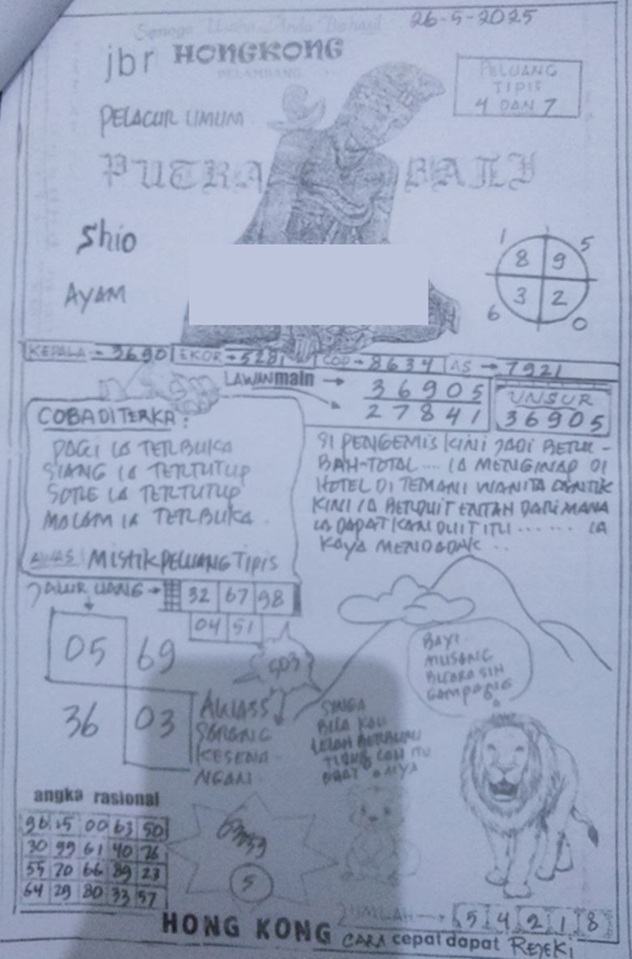 Semoga Usaha Anda Berhasil
26-5-2025
jbr HONGKONG
PELAMBANG
PELUANG
TIPIS
4 DAN 7
PELACUR UMUM
PUTRA BALI
Shio
AYAM
1 5
8 9
3 2
6 0
KEPALA → 3690 EKOR → 5281 COP → 8634 AS → 7921
LAWAN main → 36905
27841
UNSUR
36905
COBA DITERKA:
PAGI IA TERBUKA
SIANG IA TERTUTUP
SORE IA TERTUTUP
MALAM IA TERBUKA
AWAS MISTIK PELUANG TIPIS
SI PENGEMIS KINI JADI BERU-
BAH-TOTAL.... IA MENGINAP DI
HOTEL DI TEMANI WANITA CANTIK
KINI IA BERDUIT ENTAH DARI MANA
IA DAPAT KAN DUIT ITU ...... IA
KAYA MENDADAK ..
JALUR UANG → 32 67 98
04 51
05 69
36 03
AWASS
SARANG
KESENA-
NGAN
BAYI
MUSANG
BICARA SIH
GAMPANG
SINGA
BILA KAU
LELAH BERBURU
TIDUR LAH ITU
OBAT NYA
angka rasional
96 15 00 63 50
30 99 61 40 76
55 70 66 89 23
64 29 80 33 57
5
JUMLAH → 5 4 2 1 8
HONG KONG CARA cepat dapat REJEKI